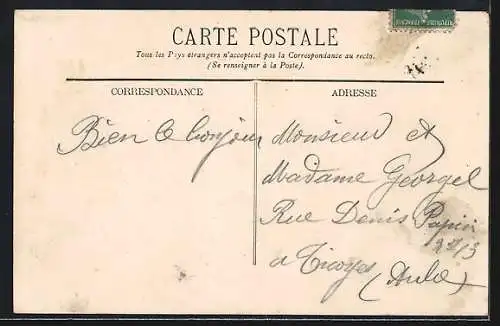 CARTE POSTALE
Tous les Pays étrangers n'acceptent pas la Correspondance au recto.
(Se renseigner à la Poste).
CORRESPONDANCE
ADRESSE
Bien le bonjour
Monsieur et
Madame Georgel
Rue Denis Papin
a Troyes
(Aube)